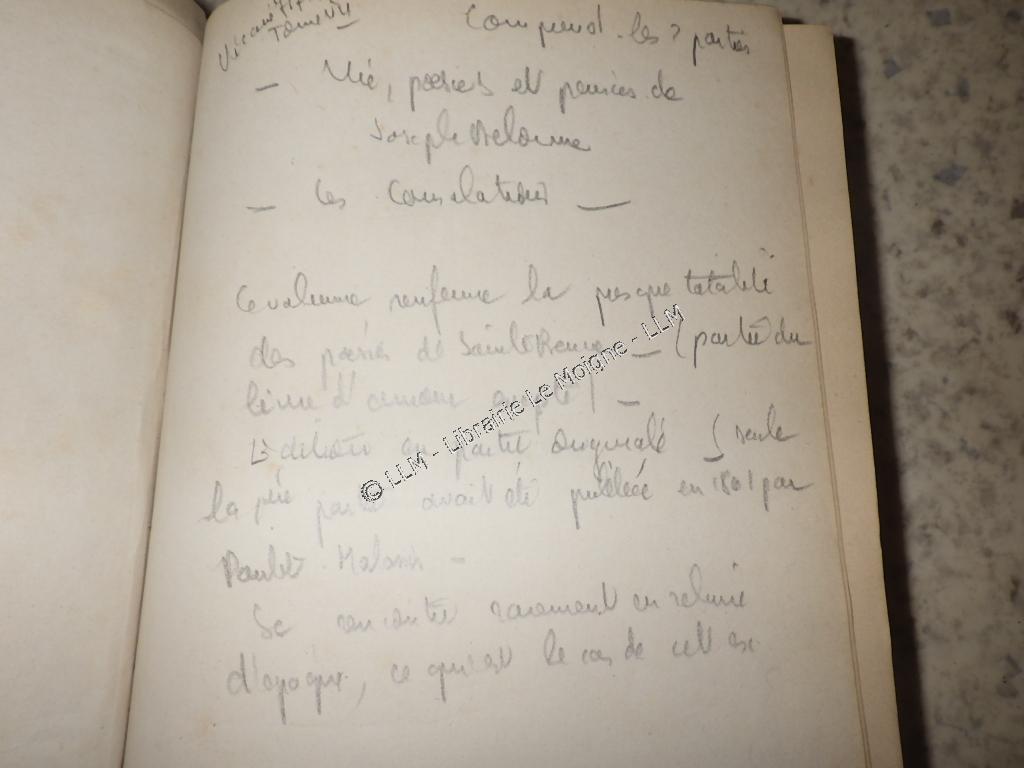 Vicaire
Tome VII
Comprend les 2 parties
— Vie, poésies et pensées de
Joseph Delorme
— Les Consolations —
Ce volume renferme la presque totalité
des poésies de Sainte Beuve — (partie du
livre d'amour excepté) —
Edition en partie originale (seule
la 1ère partie avait été publiée en 1861 par
Poulet Malassis —
Se rencontre rarement en reliure
d'époque, ce qui est le cas de cet ex
© LLM - Librairie Le Moigne - LLM